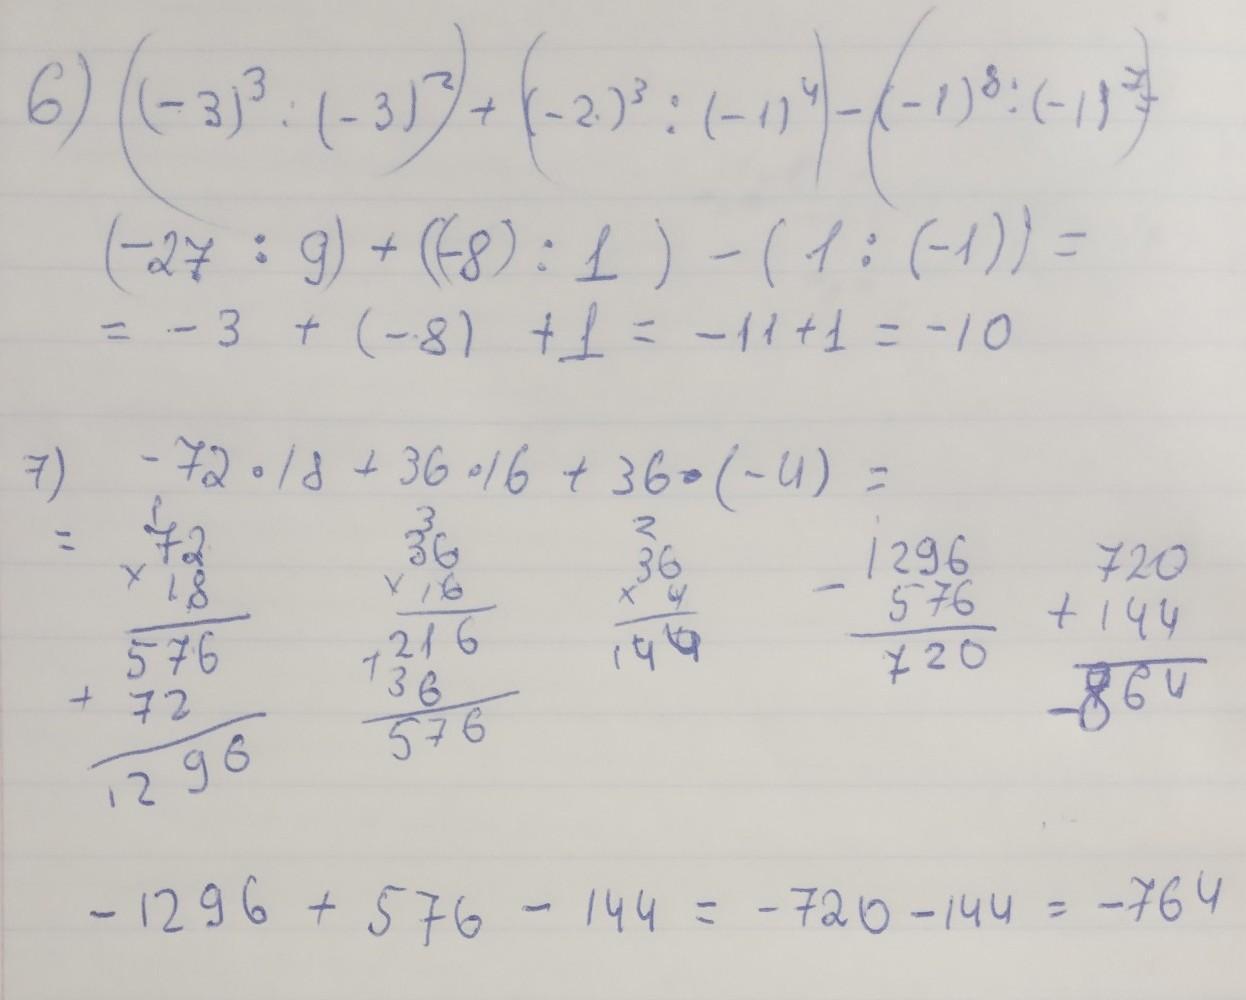 6) ((-3)³ : (-3)²) + ((-2)³ : (-1)⁴) - ((-1)⁸ : (-1)⁷)
(-27 : 9) + ((-8) : 1) - (1 : (-1)) =
= -3 + (-8) + 1 = -11 + 1 = -10
7) -72 · 18 + 36 · 16 + 36 · (-4) =
1 3 2
= 72 36 36 1296 720
× 18 × 16 × 4 - 576 + 144
576 216 144 720 -864
+ 72 + 36
1296 576
-1296 + 576 - 144 = -720 - 144 = -764